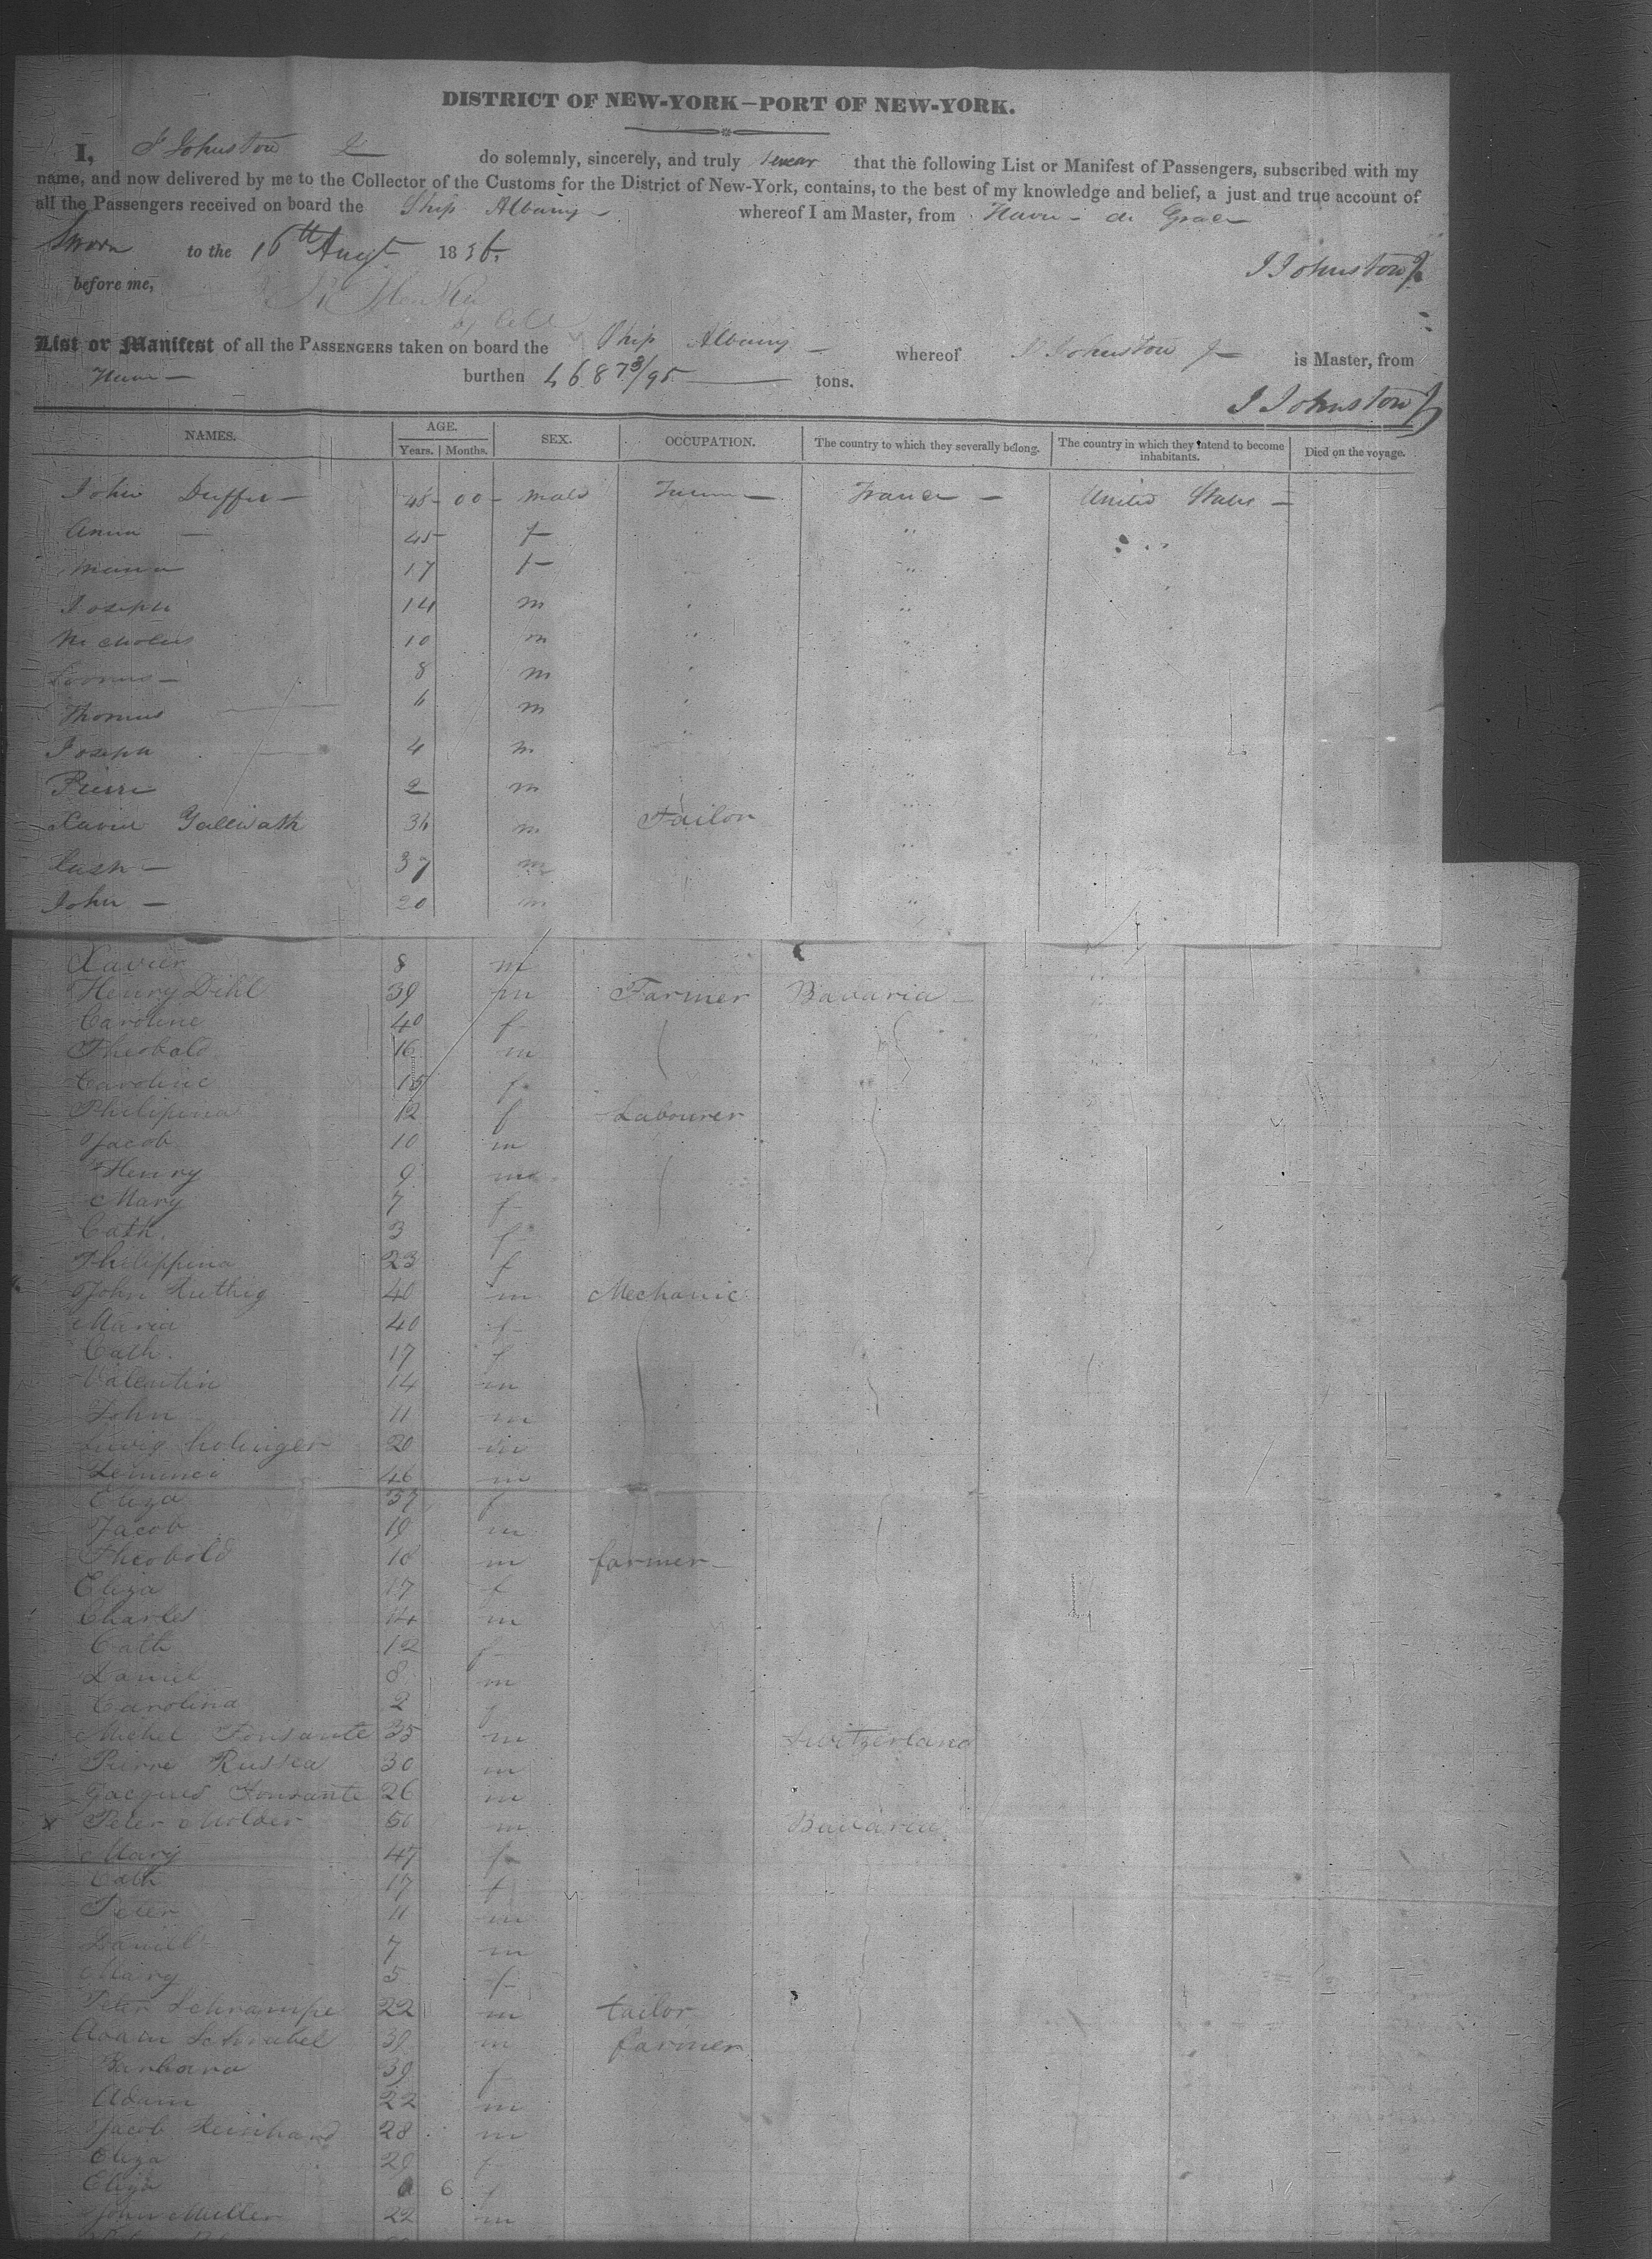 DISTRICT OF NEW-YORK—PORT OF NEW-YORK.
I, J Johnston Jr do solemnly, sincerely, and truly swear that the following List or Manifest of Passengers, subscribed with my
name, and now delivered by me to the Collector of the Customs for the District of New-York, contains, to the best of my knowledge and belief, a just and true account of
all the Passengers received on board the Ship Albany whereof I am Master, from Havre de Grace
Sworn to the 16th Augt 1836.
J Johnston Jr
before me,
List or Manifest of all the PASSENGERS taken on board the Ship Albany — whereof J Johnston Jr is Master, from
Havre — burthen 468 73/95 — tons.
J Johnston Jr
NAMES. AGE. SEX. OCCUPATION. The country to which they severally belong. The country in which they intend to become inhabitants. Died on the voyage.
Years. Months.
John 45 00 male France — United States —
Anna — 45 f "
17 f "
Joseph 14 m "
Nicholas 10 m "
8 m
Thomas 6 m
Joseph 4 m
Pierre 2 m "
Xavier 36 m Tailor "
37 m
John — 20 m "
Xavier 8 m
Henry Dihl 39 m Farmer Bavaria
Caroline 40 f
Theobald 16 m
Caroline 15 f
Philipina 12 f Labourer
Jacob 10 m
Henry 9 m
Mary 7 f
Cath. 3 f
Philippina 23 f
John Ruthig 40 m Mechanic
Maria 40 f
Cath. 17 f
Valentin 14 m
John 11 m
20 m
46 m
Eliza 37 f
Jacob 19 m
Theobold 18 m farmer
Eliza 17 f
Charles 14 m
Cath 12 f
Daniel 8 m
Carolina 2 f
Michel Fonsante 35 m Switzerland
Pierre Russea 30 m
Jacques Fonsante 26 m
x Peter Molder 50 m Bavaria
Mary 47 f
Cath 17 f
Peter 11 m
Daniel 7 m
Mary 5 f
Peter Schrampe 22 m tailor
Adam Schnabel 39 m farmer
Barbara 39 f
Adam 22 m
Jacob Reinhard 28 m
Eliza 29 f
Eliza 0 6 f
John Muller 22 m